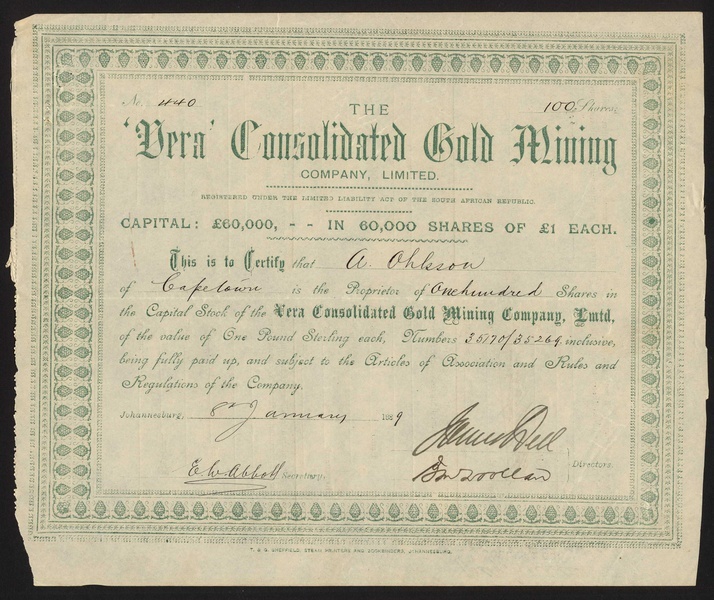 No. 440 100 Shares
THE
'Vera' Consolidated Gold Mining
COMPANY, LIMITED.
REGISTERED UNDER THE LIMITED LIABILITY ACT OF THE SOUTH AFRICAN REPUBLIC.
CAPITAL: £60,000, - - IN 60,000 SHARES OF £1 EACH.
This is to Certify that A. Ohlsson
of Capetown is the Proprietor of One hundred Shares in
the Capital Stock of the Vera Consolidated Gold Mining Company, Lmtd.
of the value of One Pound Sterling each, Numbers 35170/35269 inclusive,
being fully paid up, and subject to the Articles of Association and Rules and
Regulations of the Company.
Johannesburg, 8th January 1889
E W Abbott Secretary.
Directors.
T. & G. SHEFFIELD, STEAM PRINTERS AND BOOKBINDERS, JOHANNESBURG.